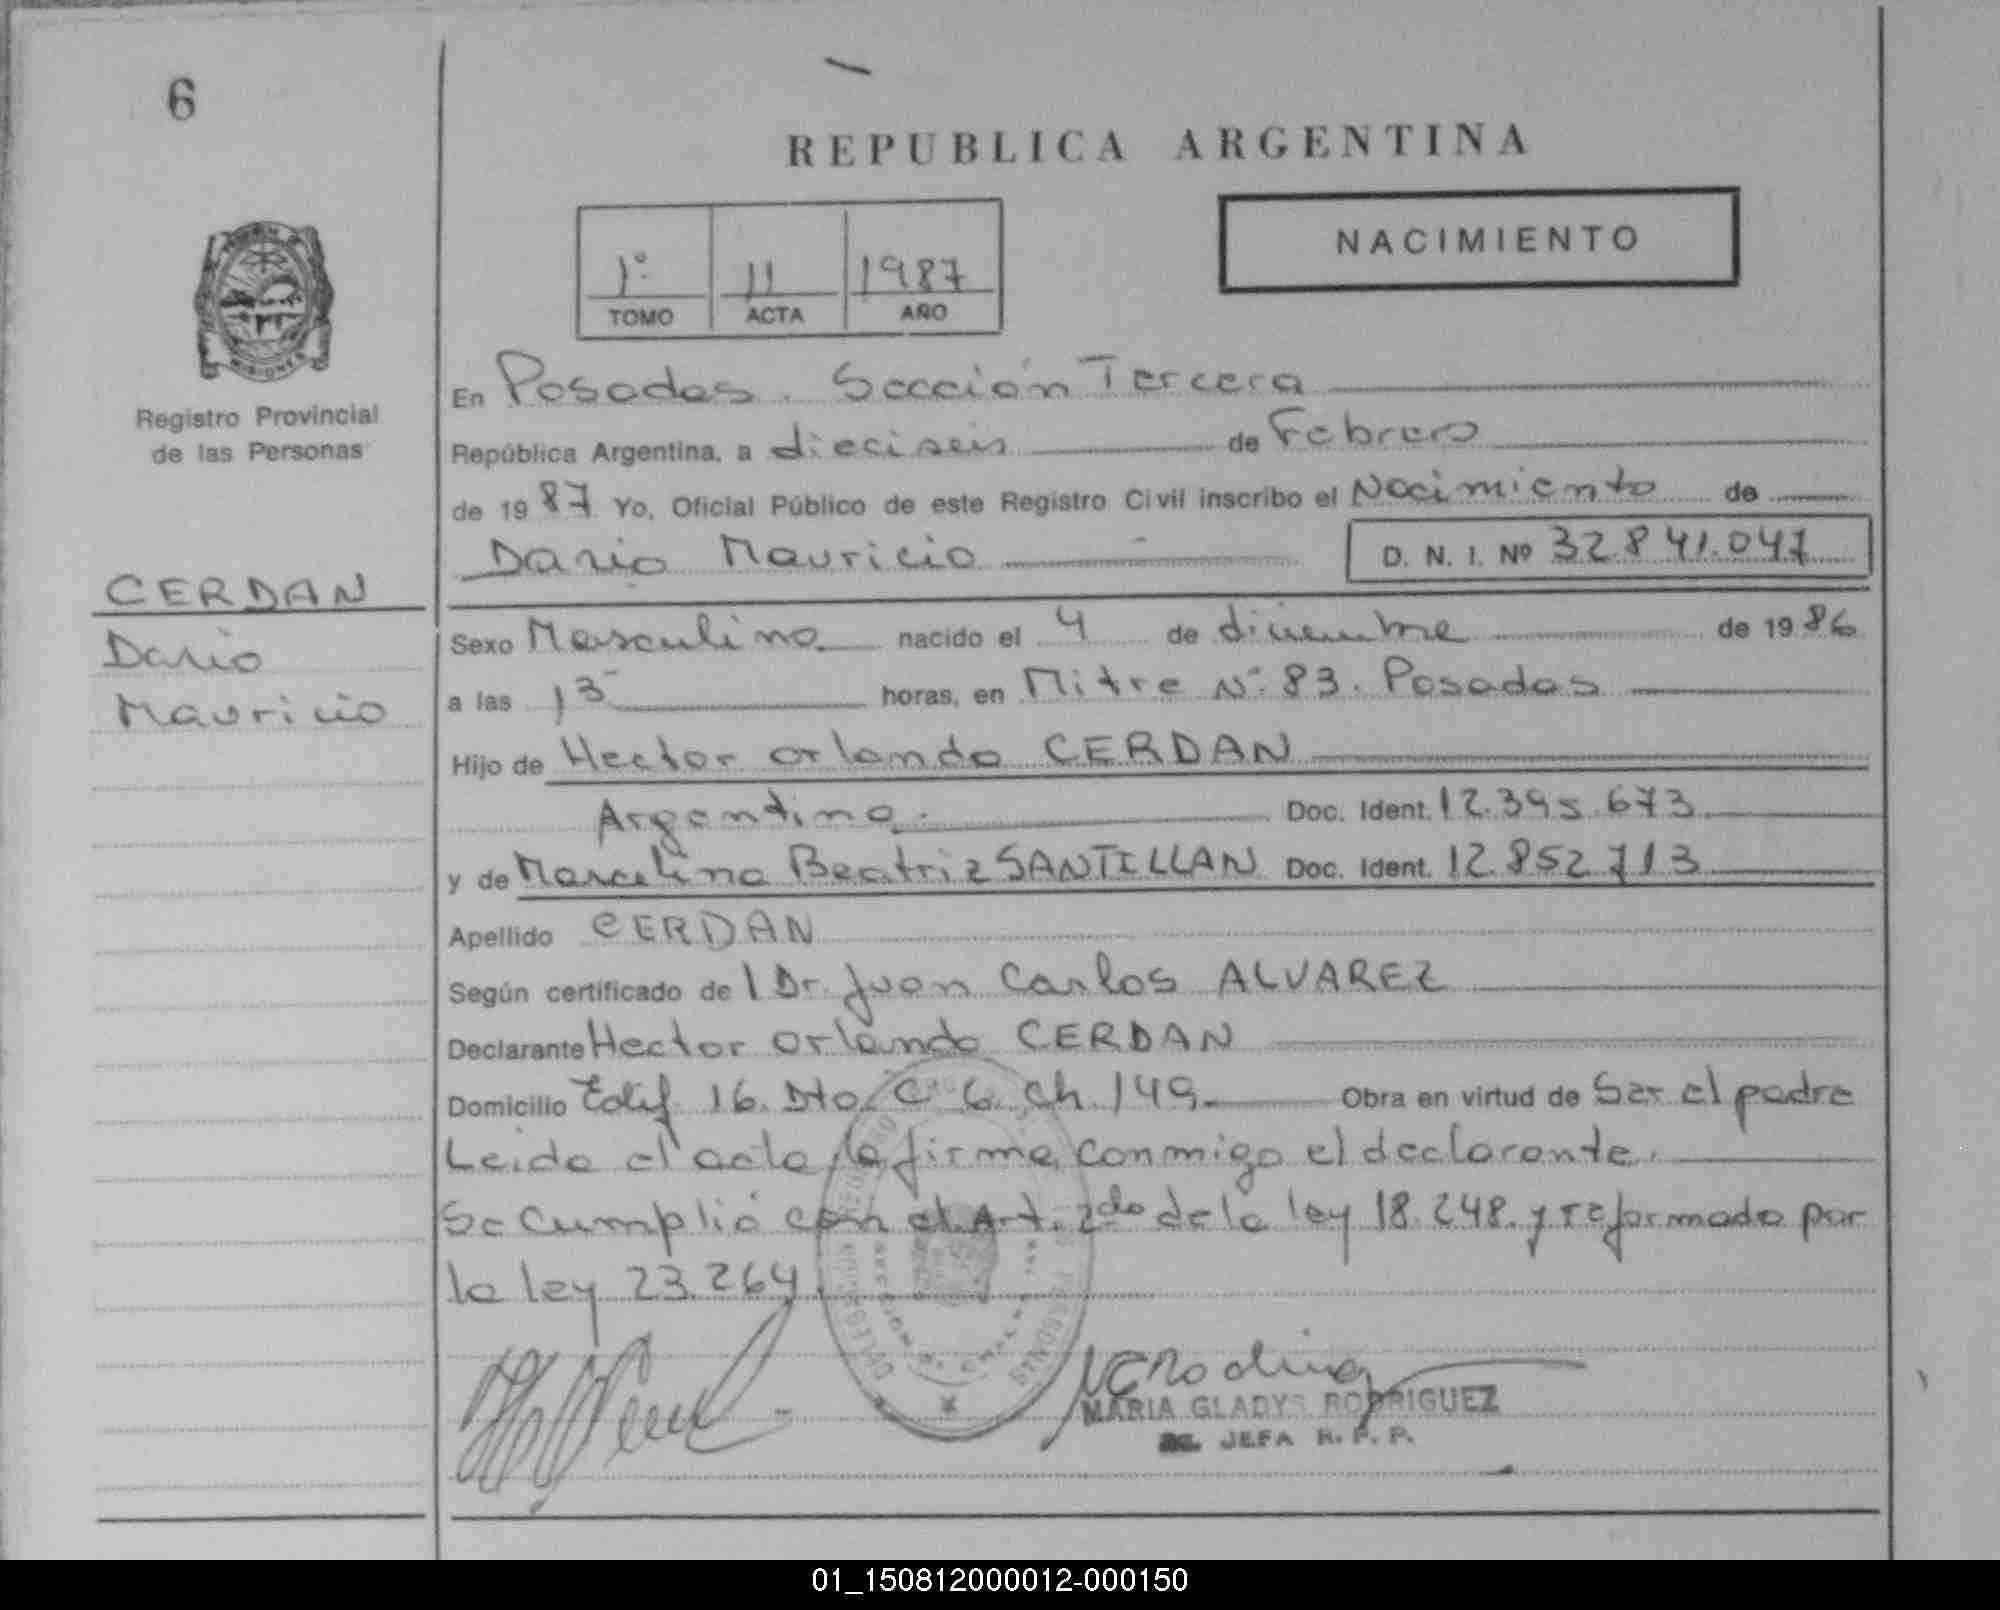 6
REPUBLICA ARGENTINA
NACIMIENTO
1º 11 1987
TOMO ACTA AÑO
MISIONES
Registro Provincial
de las Personas
En Posadas. Sección Tercera
República Argentina, a dieciseis de Febrero
de 1987 Yo, Oficial Público de este Registro Civil inscribo el Nacimiento de
Dario Mauricio D. N. I. Nº 32.841.047
CERDAN
Dario
Mauricio
Sexo Masculino nacido el 4 de diciembre de 1986
a las 13 horas, en Mitre Nº 83. Posadas
Hijo de Hector orlando CERDAN
Argentino. Doc. Ident. 12.395.673
y de Marcelina Beatriz SANTILLAN Doc. Ident. 12.852.713
Apellido CERDAN
Según certificado del Dr. Juan Carlos ALVAREZ
Declarante Hector orlando CERDAN
Domicilio Edif. 16. Dto. C 6. Ch. 149. Obra en virtud de Ser el padre
Leida el acta la firma conmigo el declarante.
Se Cumplió con el Art. 2do de la ley 18.248. y reformado por
la ley 23.264.
MARIA GLADYS RODRIGUEZ
JEFA R. P. P.
01_150812000012-000150